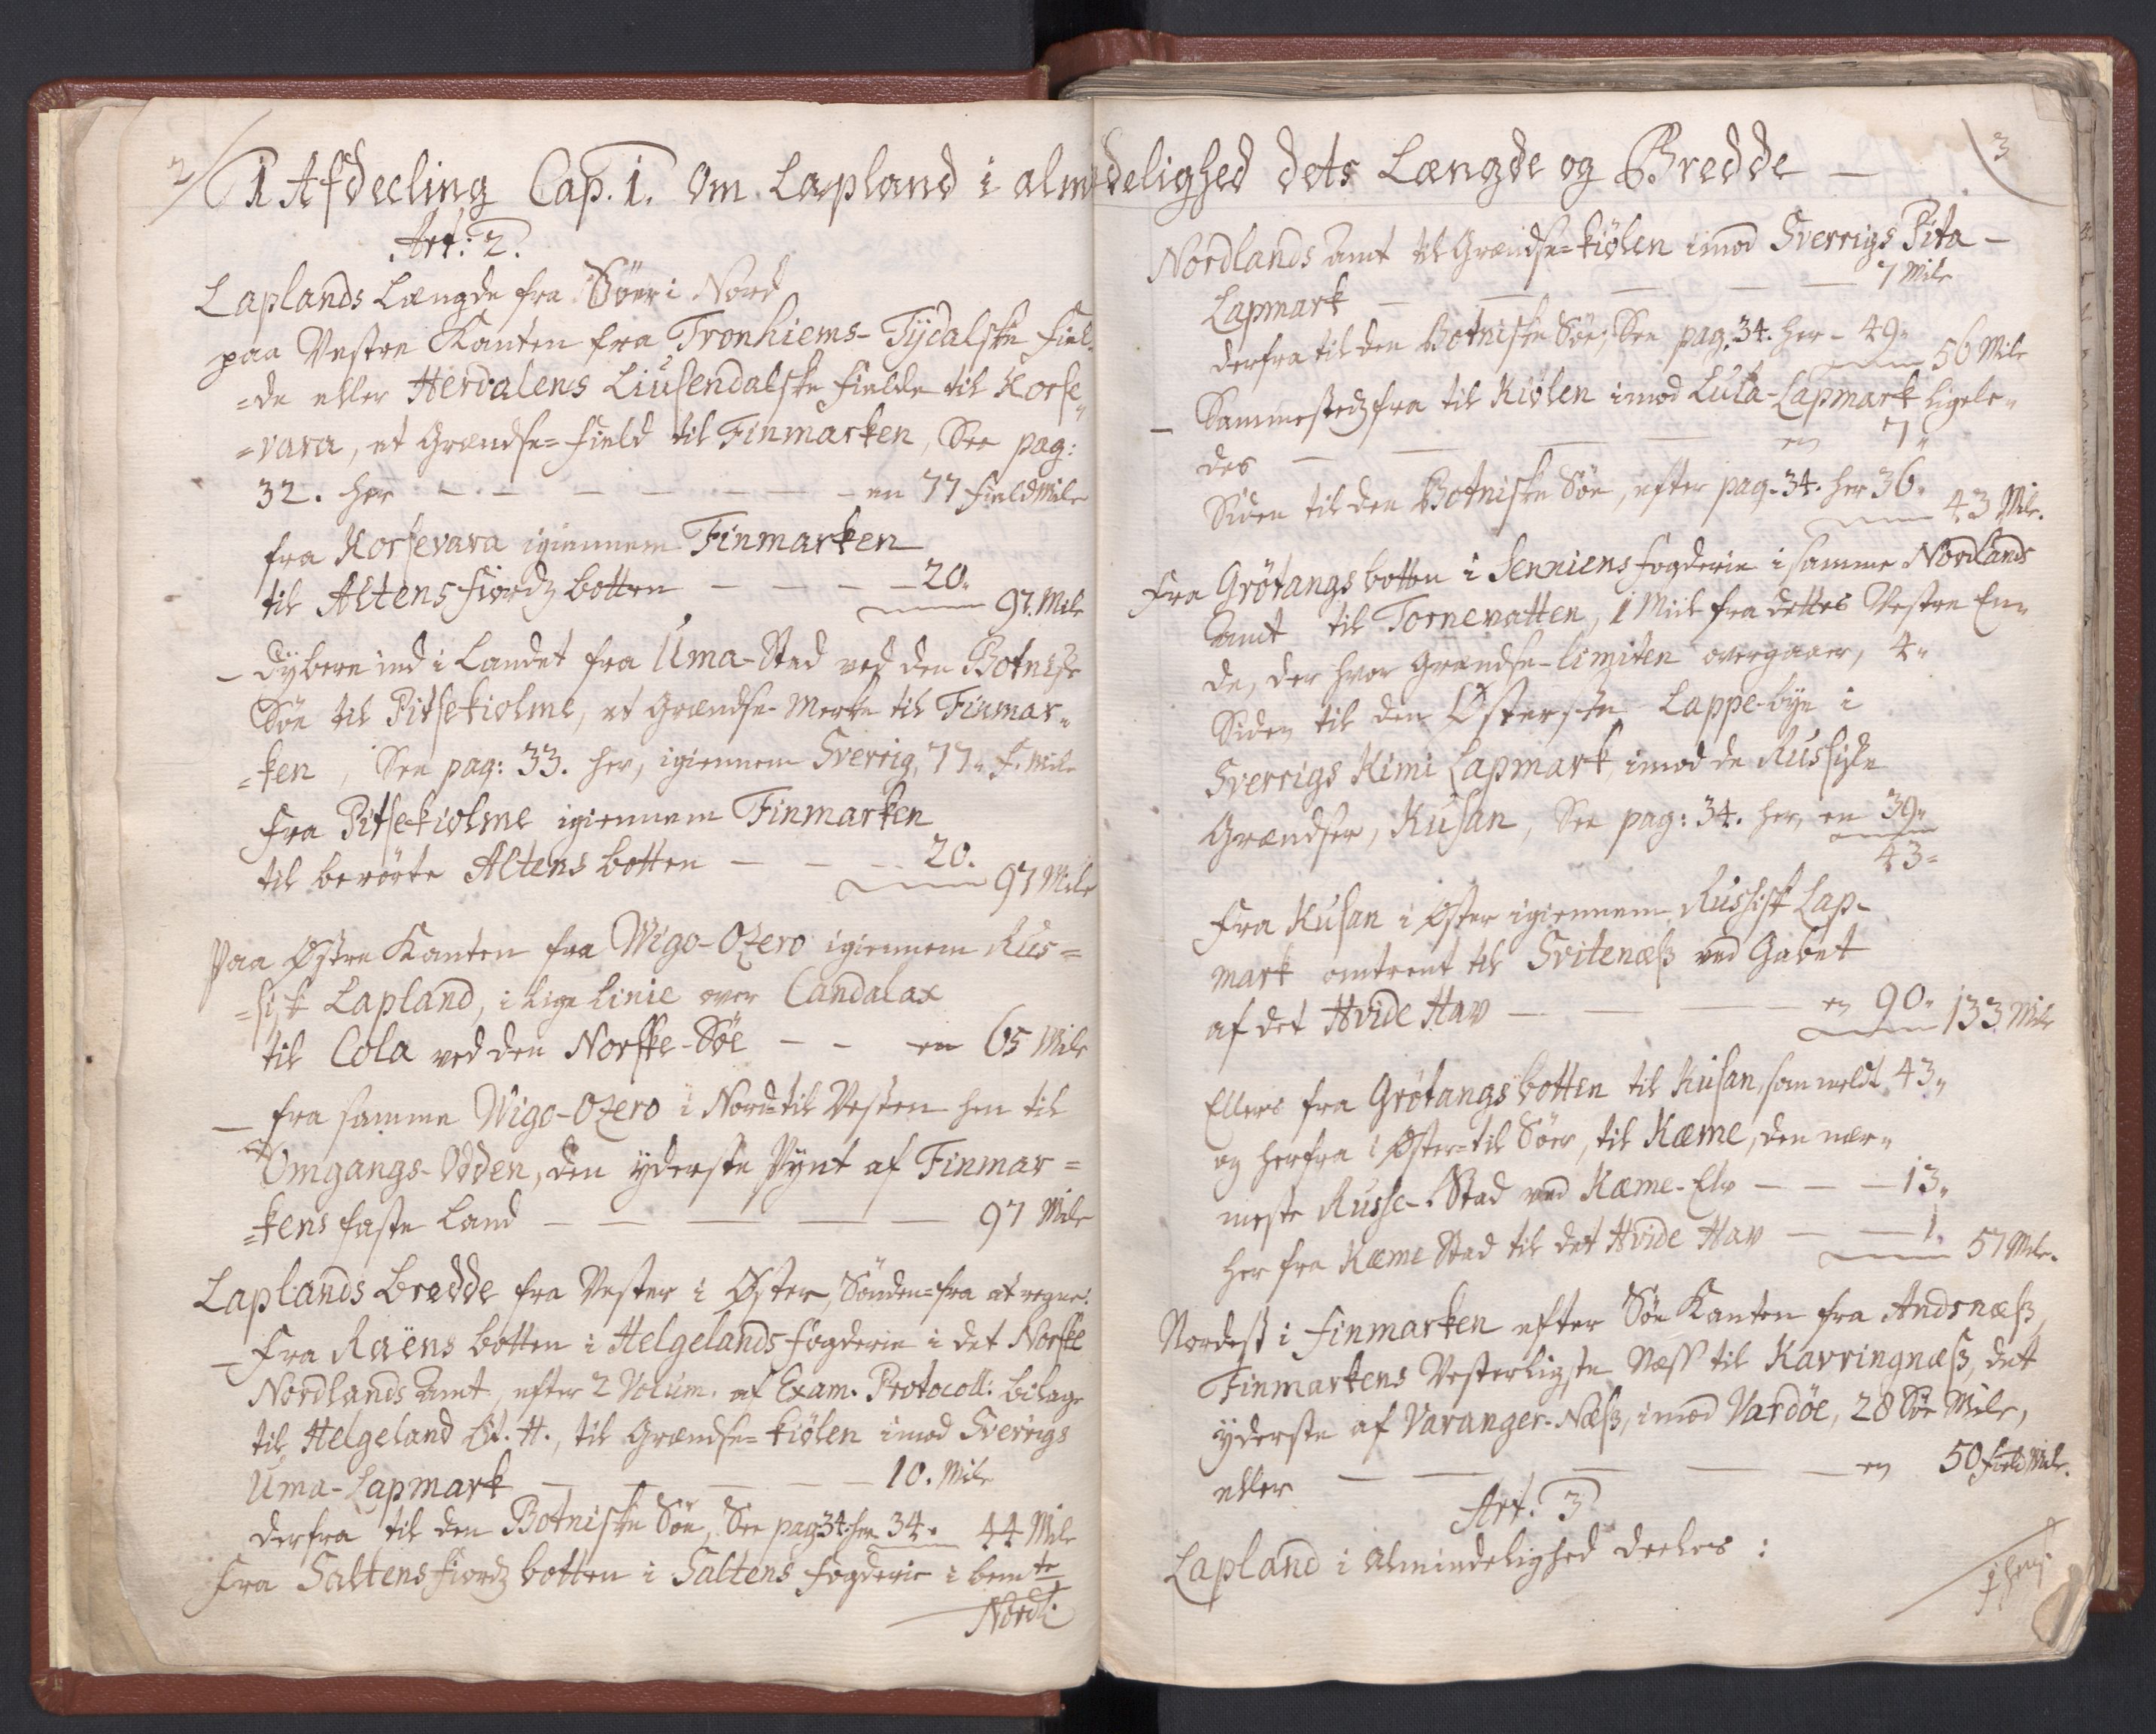 2
1 Afdeeling Cap. 1. Om Lapland i alm
Art: 2.
Laplands Længde fra Söer i Nord
paa Vestre Kanten fra Tronhiems-Tÿdalske Fiel-
=de eller Herdalens Liusendalske Fielde til Korse„
=vara, et Grændse=Field til Finmarken, See pag:
32. her - - - - - - - en 77 Field Mile
fra Korsevara igiennem Finmarken
til Altens Fiordz botten - - - - 20.
97. Mile
- Dÿbere ind i Landet fra Uma-Stad ved den Botniske
Söe til Pitsekiolme, et Grændse-Merke til Finmar„
=ken, See pag: 33. her, igiennem Sverrig, 77„ F. Mile
Fra Pitsekiolme igiennem Finmarken
til berörte Altens botten - - - 20.
97 Mile
Paa Østre Kanten fra Wigo-Ozero igiennem Rus=
=sisk Lapland, i lige Linie over Candalax
til Cola ved den Norske-Söe - - en 65 Mile
- fra samme Wigo-Ozero i Nord=til Vesten hen til
Omgangs-Odden, den ÿderste Pÿnt af Finmar=
=kens faste Land - - - - - 97 Mile
Laplands Bredde fra Vester i Øster, Sönden=fra at regne:
- Fra Raëns botten i Helgelands Fogderie i det Norske
Nordlands Amt, efter 2 Volum. af Exam. Protocoll: bilage
til Helgeland Lit. H., til Grændse=Kiölen imod Sverrigs
Uma-Lapmark - - - - 10. Mile
derfra til den Botniske Söe, See pag 34. her 34„ 44 Mile
Fra Saltens Fiordz botten i Saltens Fogderie i bemte
Nordl:
3
delighed dets Længde og Bredde -
Nordlands Amt til Grændse=Kiölen imod Sverrigs Pita-
Lapmark - - - - - 7 Mile
derfra til den Botniske Söe, See pag. 34. her - 49„
56 Mile
- Sammestedzfra til Kiölen imod Lula-Lapmark ligele„
des - - - - en 7„
Siden til den Botniske Söe, efter pag. 34. her 36„
43 Mile.
Fra Grötangs botten i Senniens Fogderie i samme Nordlands
Amt til Tornevatten, 1 Miil fra dettes Vestre En„
de, der hvor Grændse-Limiten overgaaer, 4„
Siden til den Østerste Lappe-bÿe i
Sverrigs Kimi Lapmark, imod de Russiske
Grændser, Kusan, See pag: 34. her, en 39„
43=
Fra Kusan i Øster igiennem Russisk Lap-
mark omtrent til Svitenæss ved Gabet
af det Hvide Hav - - - - en 90„
133 Mile
Ellers fra Grötangs botten til Kusan, som meldt 43„
og herfra i Øster=til Söer, til Kæme, den nær„
meste Russe-Stad ved Kæme-Elv - - - 13„
her fra Kæme Stad til det Hvide Hav - - 1.
57 Mile.
Nordest i Finmarken efter Söe Kanten fra Andsnæss,
Finmarkens Vesterligste Næss til Kavringnæss, det
ÿderste af Varanger-Næss, imod Vardöe, 28 Söe Mile,
eller - - - - - en 50 Field Mile.
Art. 3
Lapland i Almindelighed deeles: